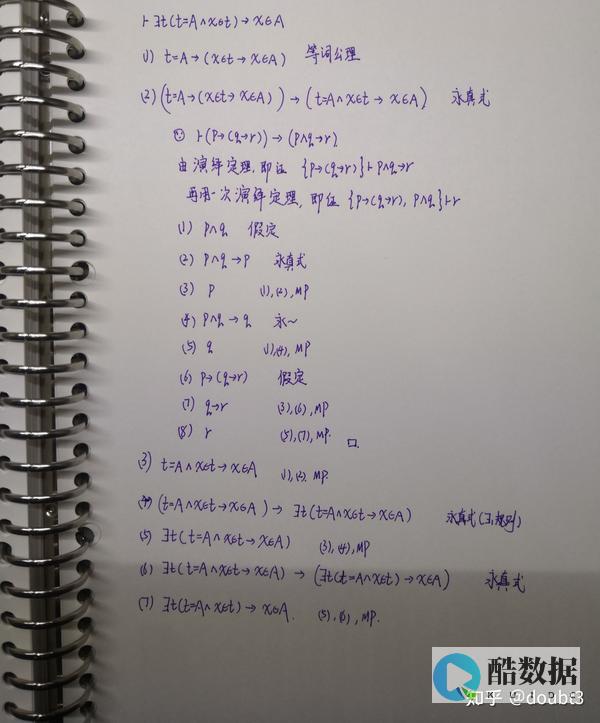 ⊢ ∃t(t=A∧x∈t)→x∈A
(1) t=A→(x∈t→x∈A) 等词公理
(2) (t=A→(x∈t→x∈A))→(t=A∧x∈t→x∈A) 永真式
⊢(p→(q→r))→(p∧q→r)
由演绎定理,即证 {p→(q→r)}⊢p∧q→r
再用一次演绎定理,即证 {p→(q→r), p∧q}⊢r
(1) p∧q 假定
(2) p∧q→p 永真式
(3) p (1),(2),MP
(4) p∧q→q 永~
(5) q (1),(4),MP
(6) p→(q→r) 假定
(7) q→r (3),(6),MP
(8) r (5),(7),MP. □
(3) t=A∧x∈t→x∈A (1),(2),MP.
(4) (t=A∧x∈t→x∈A)→∃t(t=A∧x∈t→x∈A) 永真式(∃₁规则)
(5) ∃t(t=A∧x∈t→x∈A) (3),(4),MP
(6) ∃t(t=A∧x∈t→x∈A)→(∃t(t=A∧x∈t)→x∈A) 永真式
(7) ∃t(t=A∧x∈t)→x∈A. (5),(6),MP.
酷数据
知乎 @doubt3